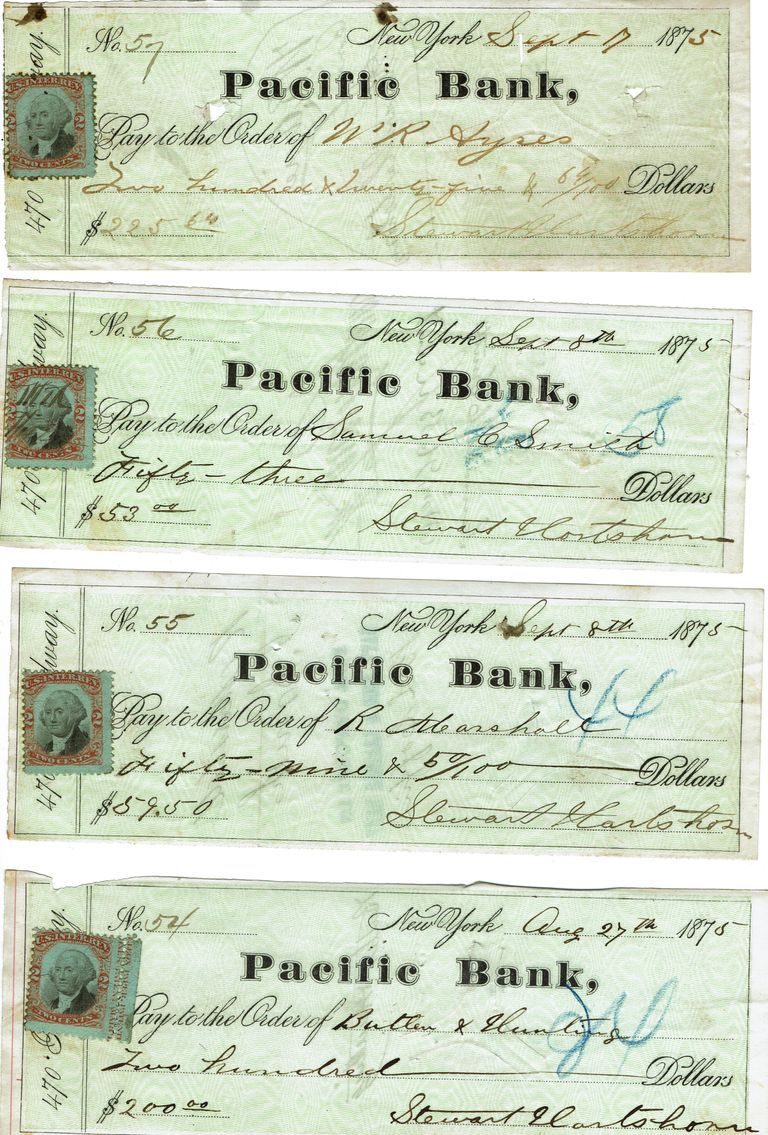 No. 57 New York Sept 17 1875
Pacific Bank,
U.S. INTER. REV.
TWO CENTS
Pay to the Order of W. R. Ayres
Two hundred & twenty-five & 64/100 Dollars
$ 225 64 Stewart Hartshorn
470 way.
No. 56 New York Sept 8th 1875
Pacific Bank,
U.S. INTER. REV.
TWO CENTS
58
Pay to the Order of Samuel C Smith
Fifty-three Dollars
$ 53 00 Stewart Hartshorn
470 way.
No. 55 New York Sept 8th 1875
Pacific Bank,
U.S. INTER. REV.
2 2
TWO CENTS
44
Pay to the Order of R Marshall
Fifty-nine & 50/100 Dollars
$ 59.50 Stewart Hartshorn
470 way.
No. 54 New York Aug 27th 1875
Pacific Bank,
U.S. INTER. REV.
2 2
TWO CENTS
Pay to the Order of Butler & Hunting
Two hundred Dollars
$ 200 00 Stewart Hartshorn
470 y.